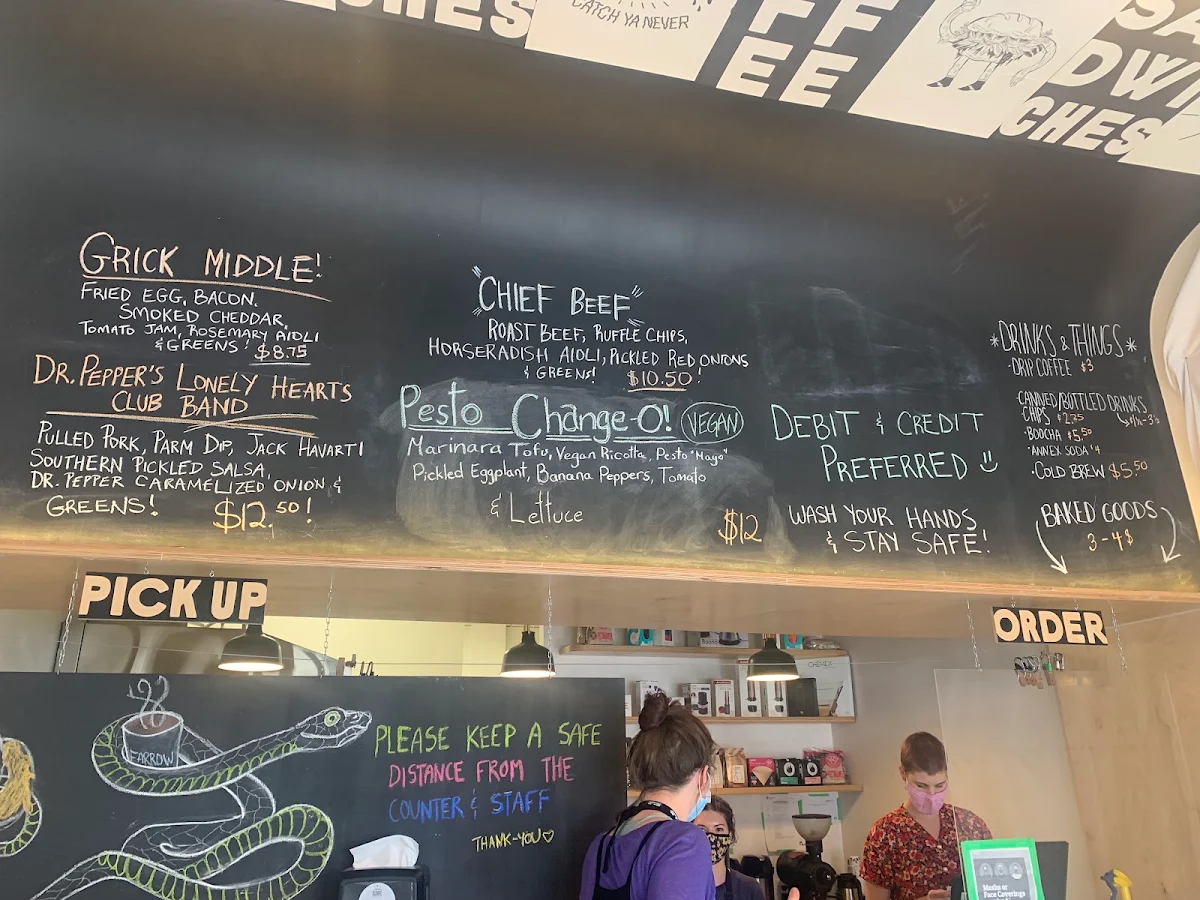 CHES
CATCH YA NEVER
FF
EE
SA
DWI
CHES
GRICK MIDDLE!
FRIED EGG, BACON.
SMOKED CHEDDAR,
TOMATO JAM, ROSEMARY AIOLI
& GREENS! $8.75
DR. PEPPER'S LONELY HEARTS
CLUB BAND
PULLED PORK, PARM DIP, JACK HAVARTI
SOUTHERN PICKLED SALSA,
DR. PEPPER CARAMELIZED ONION &
GREENS! $12.50!
"CHIEF BEEF"
ROAST BEEF, RUFFLE CHIPS,
HORSERADISH AIOLI, PICKLED RED ONIONS
& GREENS! $10.50!
Pesto Change-O! VEGAN
Marinara Tofu, Vegan Ricotta, Pesto "Mayo"
Pickled Eggplant, Banana Peppers, Tomato
& Lettuce
$12
DEBIT & CREDIT
PREFERRED
WASH YOUR HANDS
& STAY SAFE!
*DRINKS & THINGS*
·DRIP COFFEE $3
·CANNED/BOTTLED DRINKS
CHIPS $2.75
·BOOCHA $5.50
·ANNEX SODA $4
·COLD BREW $5.50
BAKED GOODS
3-4$
PICK UP
ORDER
FARROW
PLEASE KEEP A SAFE
DISTANCE FROM THE
COUNTER & STAFF
THANK-YOU♡
CHEMEX
Masks or
Face Coverings